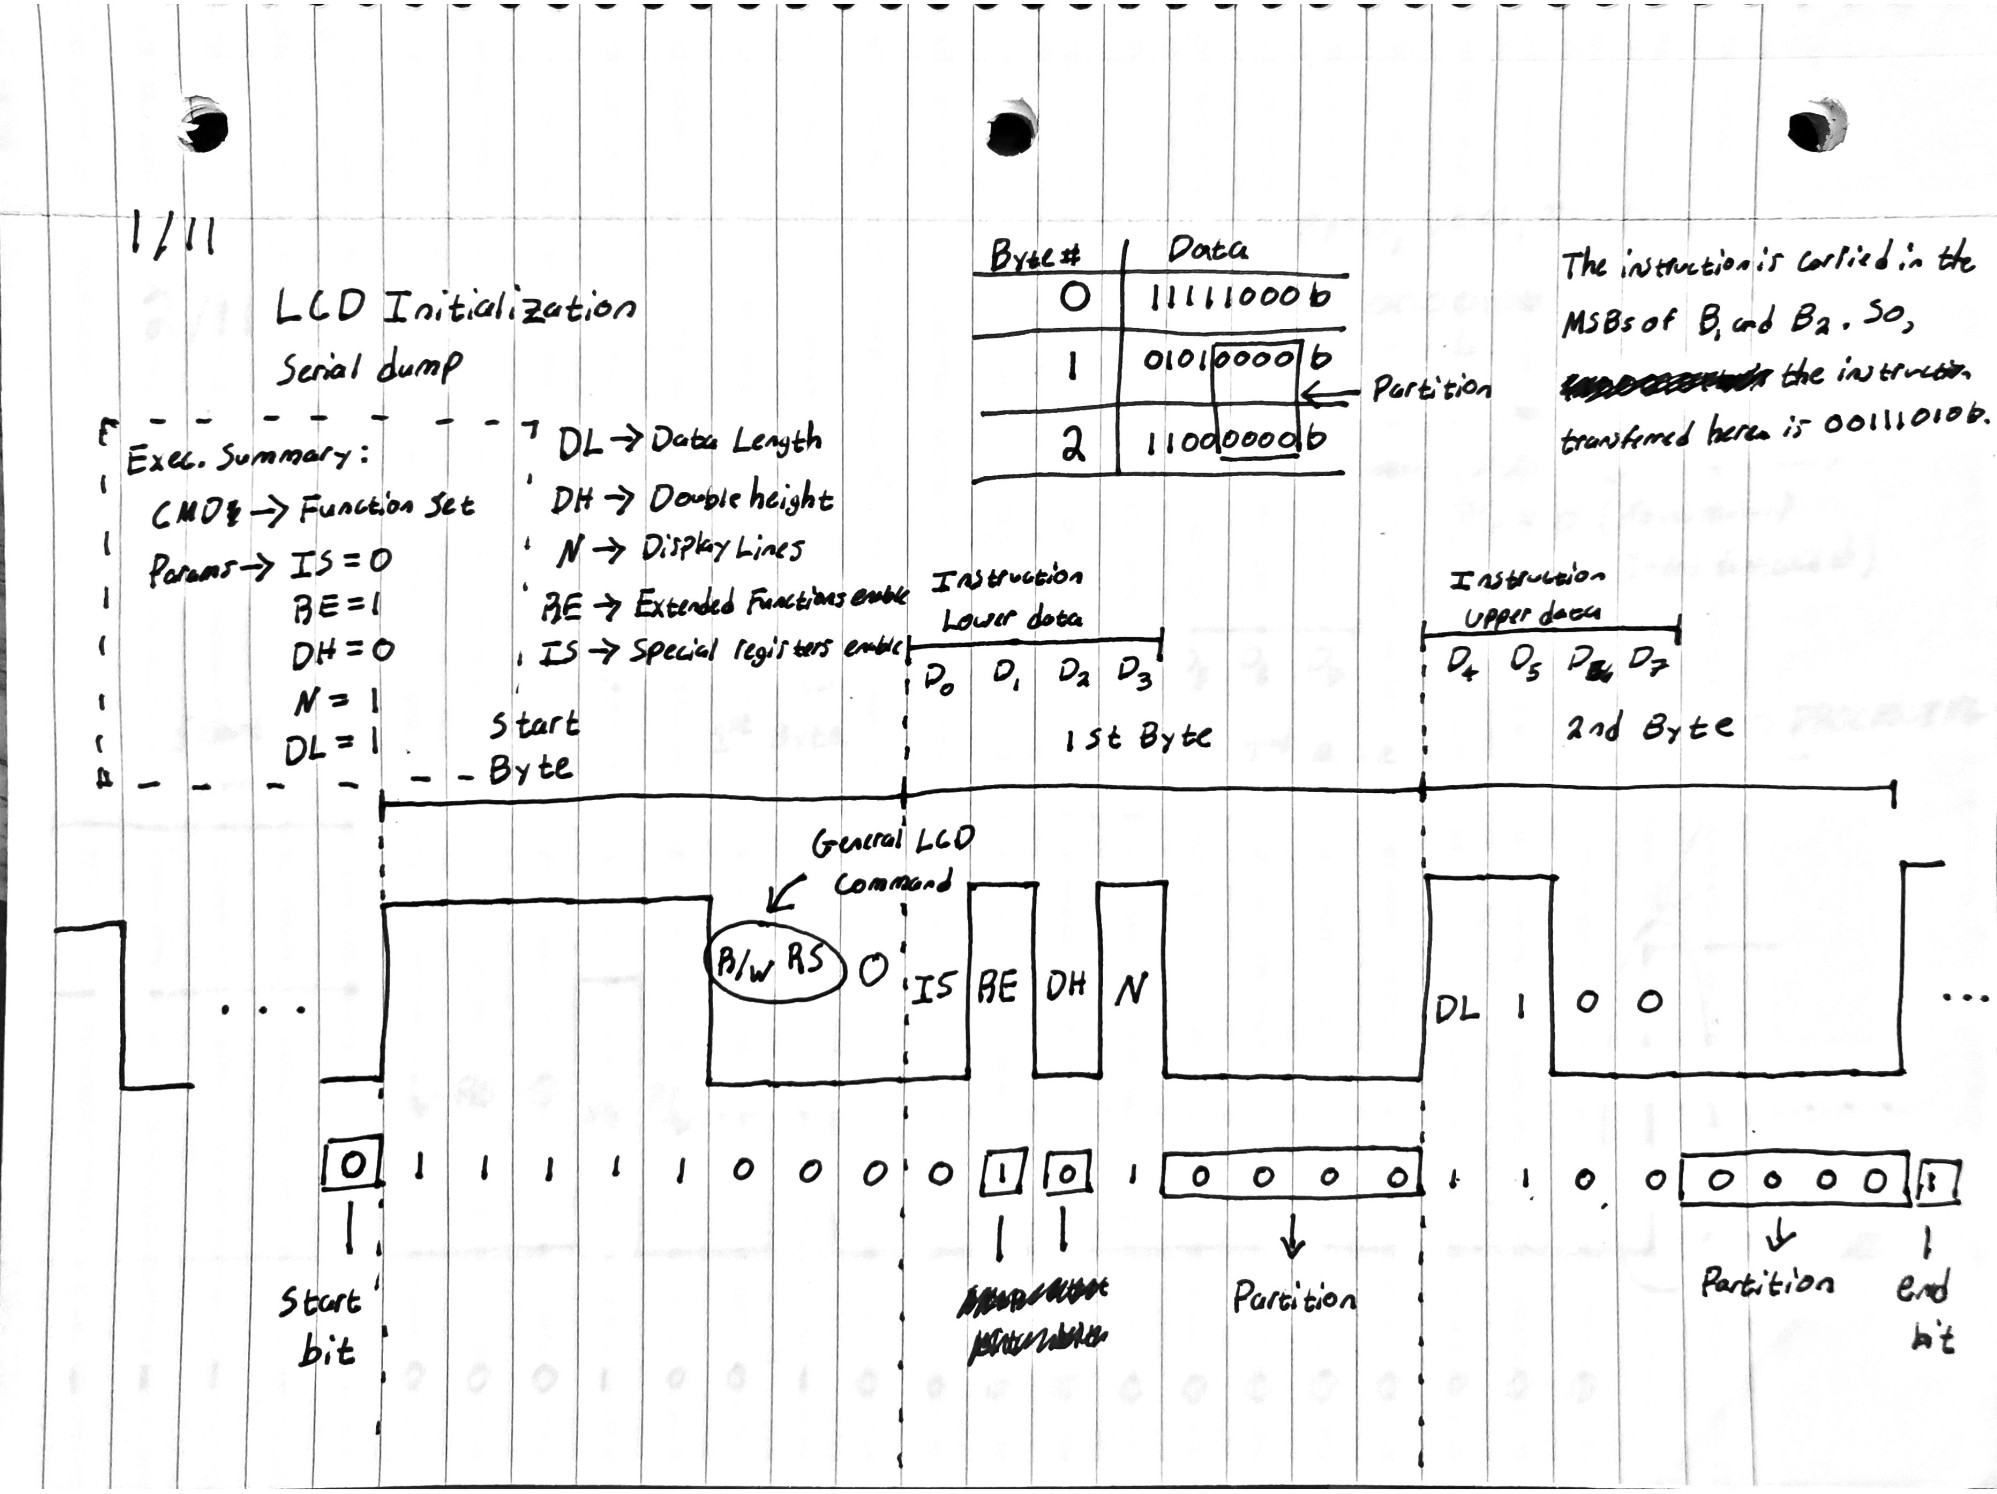 1/11
LCD Initialization
Serial dump
Exec. Summary:
CMD → Function Set
Params → IS = 0
RE = 1
DH = 0
N = 1
DL = 1
DL → Data Length
DH → Double height
N → Display Lines
RE → Extended Functions enable
IS → Special registers enable
Byte # Data
0 11111000b
1 01010000b
2 11000000b
← Partition
The instruction is carried in the
MSBs of B1 and B2. So,
the instruction
transferred here is 00111010b.
Instruction
Lower data
D0 D1 D2 D3
Instruction
Upper data
D4 D5 D6 D7
Start
Byte
1st Byte
2nd Byte
General LCD
Command
R/W RS 0 IS RE DH N DL 1 0 0
... ...
0 1 1 1 1 1 0 0 0 0 1 0 1 0 0 0 0 1 1 0 0 0 0 0 0 1
Start
bit
Partition
Partition
end
bit